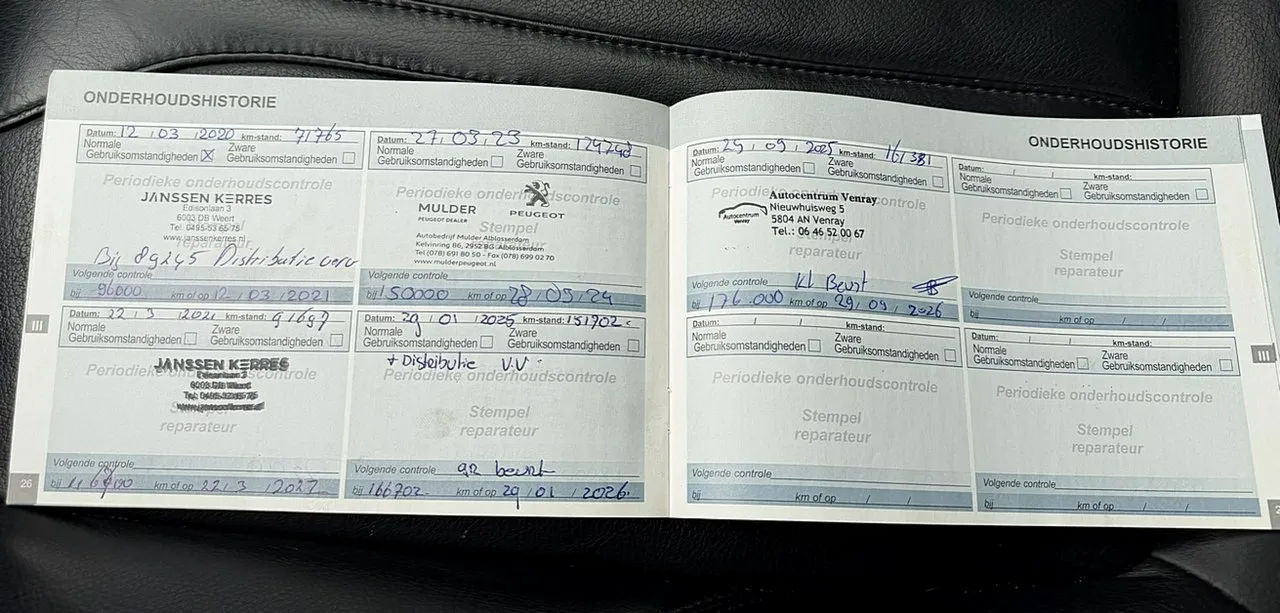 ONDERHOUDSHISTORIE
Datum: 12 / 03 / 2020 km-stand: 71765
Normale Gebruiksomstandigheden ☒ Zware Gebruiksomstandigheden ☐
Periodieke onderhoudscontrole
JANSSEN KERRES
Edisonlaan 3
6003 DB Weert
Tel: 0495-53 65 75
www.janssenkerres.nl
reparateur
Bij 89245 Distributie verv
Volgende controle
bij 96000 km of op 12 / 03 / 2021
Datum: 22 / 3 / 2021 km-stand: 91697
Normale Gebruiksomstandigheden ☐ Zware Gebruiksomstandigheden ☐
Periodieke onderhoudscontrole
JANSSEN KERRES
Edisonlaan 3
6003 DB Weert
Tel: 0495-53 65 75
Stempel
reparateur
Volgende controle
bij km of op 22 / 3 /
Datum: 27 / 03 / 23 km-stand: 124248
Normale Gebruiksomstandigheden ☐ Zware Gebruiksomstandigheden ☐
Periodieke onderhoudscontrole
MULDER
PEUGEOT DEALER
PEUGEOT
Stempel
Autobedrijf Mulder Alblasserdam
Kelvinring 86, 2952 BG Alblasserdam
Tel (078) 691 80 50 - Fax (078) 699 02 70
www.mulderpeugeot.nl
Volgende controle
bij 150000 km of op 28 / 03 / 24
Datum: 29 / 01 / 2025 km-stand: 151702
Normale Gebruiksomstandigheden ☐ Zware Gebruiksomstandigheden ☐
+ Distributie V.V.
Periodieke onderhoudscontrole
Stempel
reparateur
Volgende controle gr beurt
bij 166702 km of op 29 / 01 / 2026
III
26
ONDERHOUDSHISTORIE
Datum: 29 / 09 / 2025 km-stand: 161381
Normale Gebruiksomstandigheden ☐ Zware Gebruiksomstandigheden ☐
Periodieke onderhoudscontrole
Autocentrum Venray
Autocentrum Venray
Nieuwhuisweg 5
5804 AN Venray
Tel.: 06 46 52 00 67
Volgende controle kl Beurt
bij 176.000 km of op 29 / 09 / 2026
Datum: / / km-stand:
Normale Gebruiksomstandigheden ☐ Zware Gebruiksomstandigheden ☐
Periodieke onderhoudscontrole
Stempel
reparateur
Volgende controle
bij km of op / /
Datum: / / km-stand:
Normale Gebruiksomstandigheden ☐ Zware Gebruiksomstandigheden ☐
Periodieke onderhoudscontrole
Stempel
reparateur
Volgende controle
bij km of op / /
Datum: / / km-stand:
Normale Gebruiksomstandigheden ☐ Zware Gebruiksomstandigheden ☐
Periodieke onderhoudscontrole
Stempel
reparateur
Volgende controle
bij km of op / /
III